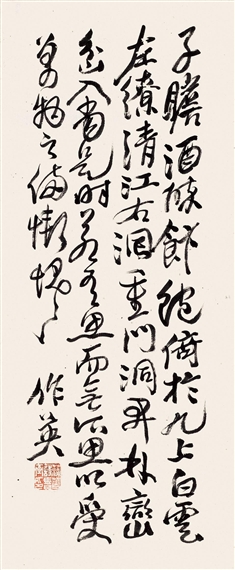 子瞻酒醉飯飽倚於几上白雲
左繚清江右洄重門洞開林巒
坌入當是時若有思而無所思以受
萬物之備慚愧〻
作英